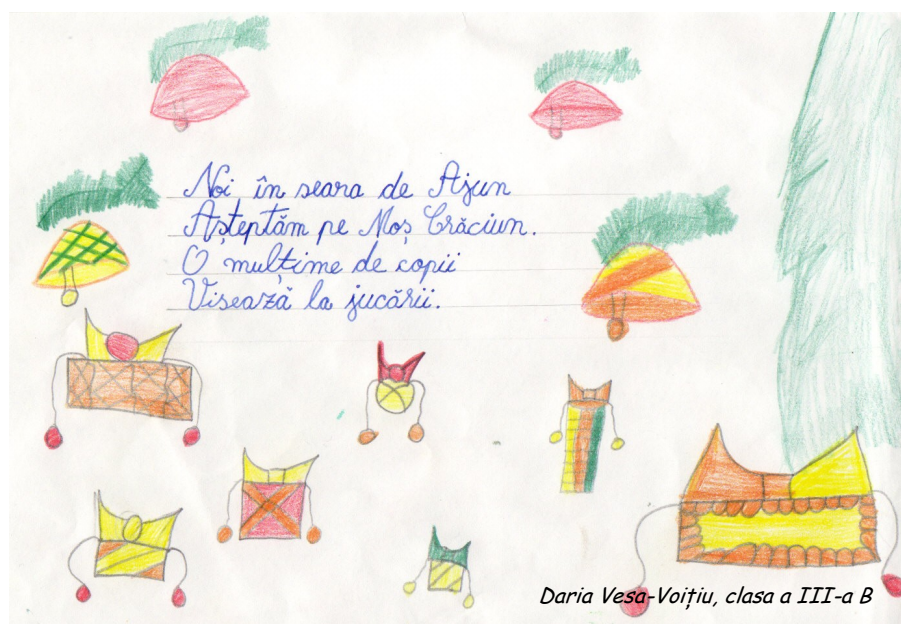 Noi în seara de Ajun
Așteptăm pe Moș Crăciun.
O mulțime de copii
Visează la jucării.
Daria Vesa-Voițiu, clasa a III-a B